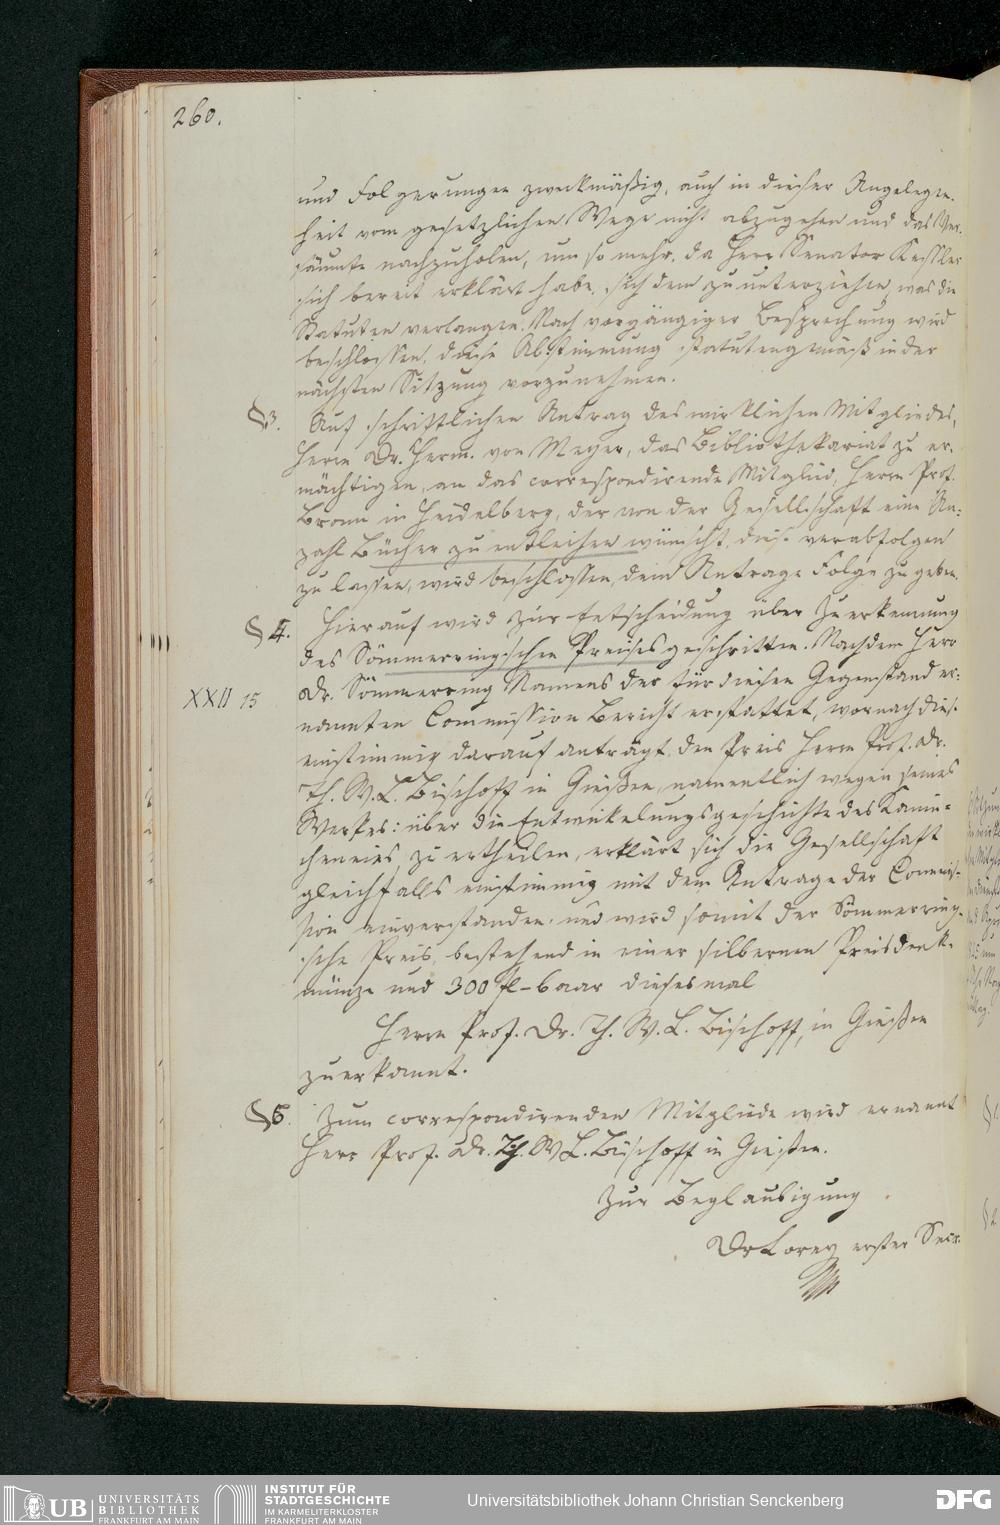 260.
und Folgerungen zweckmäßig, auch in dieser Angelegen-
heit vom gesetzlichen Wege nicht abzugehen und das Ver-
säumte nachzuholen, um so mehr, da Herr Senator Kessler
sich bereit erklärt habe, sich dem zu unterziehen, was die
Statuten verlangen. Nach vorgängiger Besprechung wird
beschlossen, diese Abstimmung statutengemäß in der
nächsten Sitzung vorzunehmen.
§3. Auf schriftlichen Antrag des wirklichen Mitgliedes,
Herrn Dr. Herm. von Meyer, das Bibliothekariat zu er-
mächtigen, an das correspondirende Mitglied, Herrn Prof.
Bronn in Heidelberg, der von der Gesellschaft eine An-
zahl Bücher zu entleihen wünscht, diese verabfolgen
zu lassen, wird beschlossen, dem Antrage Folge zu geben.
§4. Hierauf wird zur Entscheidung über Zuerkennung
des Sömmerringischen Preises geschritten. Nachdem Herr
XXII 15
Dr. Sömmerring Namens der für diesen Gegenstand er-
nannten Commission Bericht erstattet, wornach diese
einstimmig darauf anträgt, den Preis Herrn Prof. Dr.
Th. W. L. Bischoff in Gießen, namentlich wegen seines
Werkes: über die Entwickelungsgeschichte des Kanin-
cheneies, zu ertheilen, erklärt sich die Gesellschaft
gleichfalls einstimmig mit dem Antrage der Commis-
sion einverstanden und wird somit der Sömmerring-
sche Preis, bestehend in einer silbernen Preisdenk-
münze und 300 fl-baar diesesmal
Herrn Prof. Dr. Th. W. L. Bischoff, in Gießen
zuerkannt.
§5. Zum correspondirenden Mitgliede wird ernannt
Herr Prof. Dr. Th. W L. Bischoff in Gießen.
Zur Beglaubigung
Dr Lorey erster Secr.
UB UNIVERSITÄTS
BIBLIOTHEK
FRANKFURT AM MAIN
INSTITUT FÜR
STADTGESCHICHTE
IM KARMELITERKLOSTER
FRANKFURT AM MAIN
Universitätsbibliothek Johann Christian Senckenberg
DFG